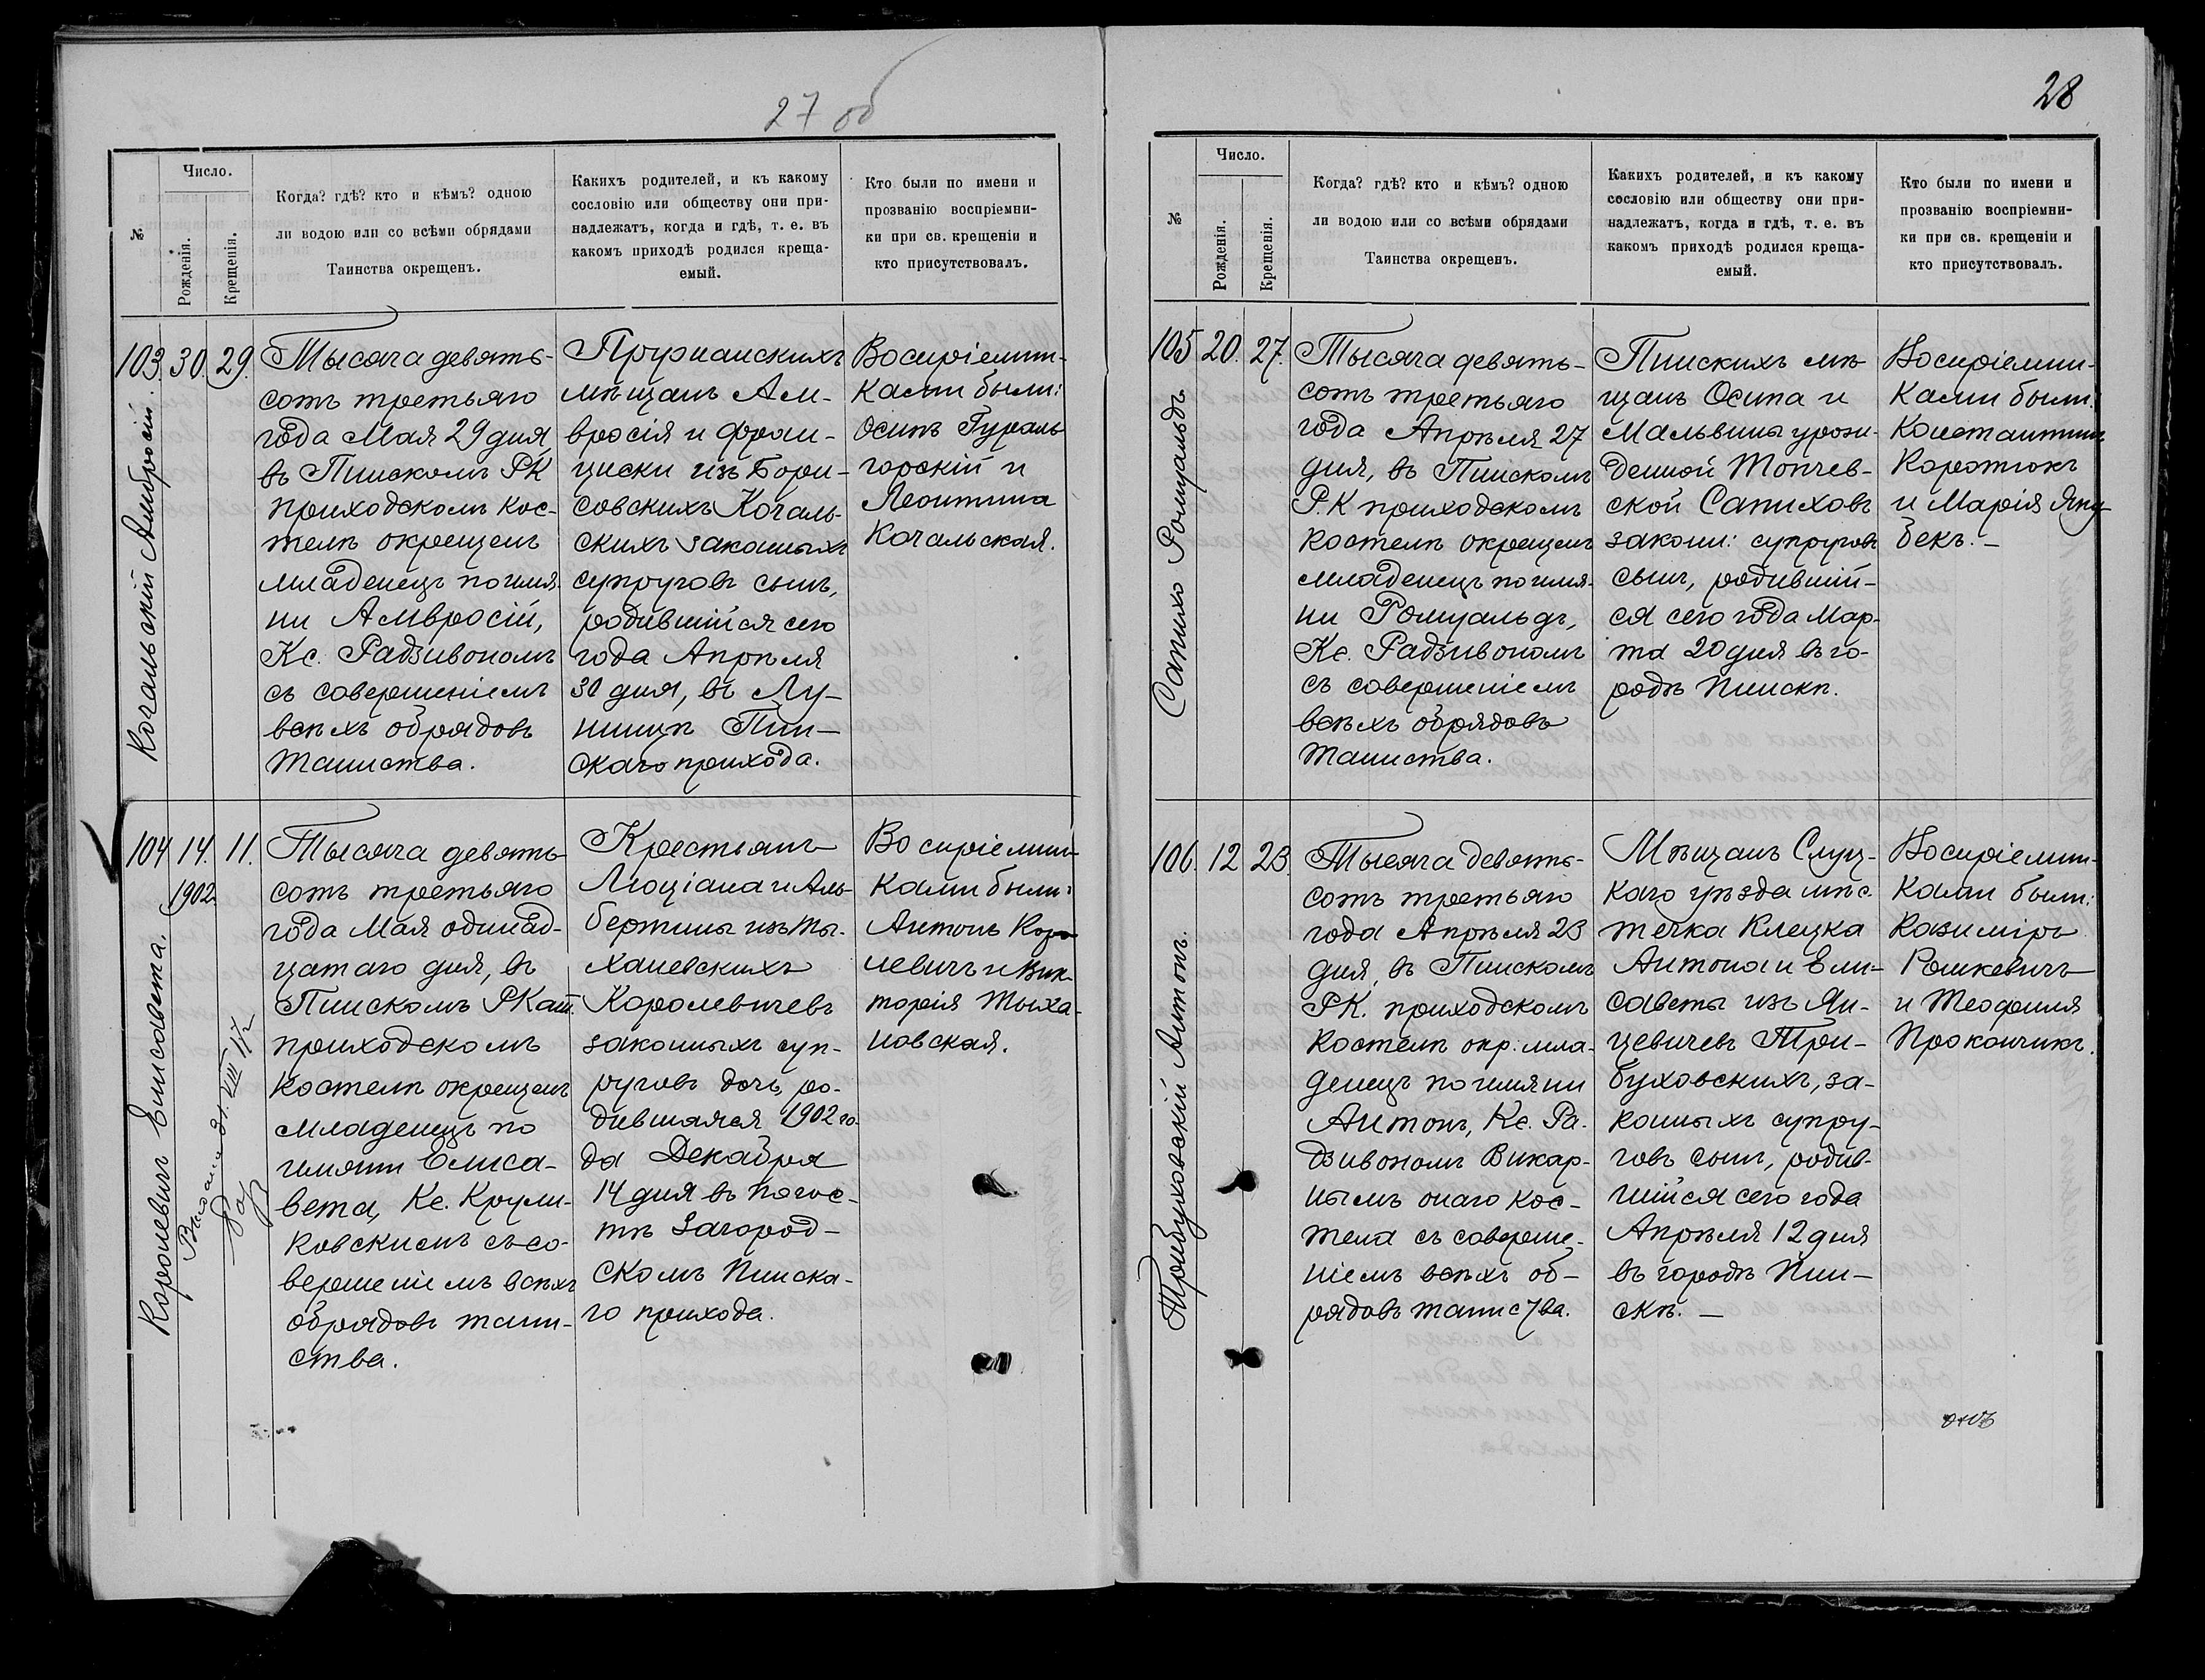 27 об
№
Число.
Рожденія.
Крещенія.
Когда? гдѣ? кто и кѣмъ? одною
ли водою или со всѣми обрядами
Таинства окрещенъ.
Какихъ родителей, и къ какому
сословію или обществу они при-
надлежатъ, когда и гдѣ, т. е. въ
какомъ приходѣ родился креща-
емый.
Кто были по имени и
прозванію воспріемни-
ки при св. крещеніи и
кто присутствовалъ.
103.
30.
29.
Кочальскій Амбросій.
Тысяча девять-
сотъ третьяго
года Мая 29 дня
въ Пинскомъ РК
приходскомъ кос-
телѣ окрещенъ
младенецъ по имя-
ни Амвросій,
Кс. Радзивономъ
съ совершеніемъ
всѣхъ обрядовъ
Таинства.
Пружанскихъ
мѣщанъ Ам-
вросія и Фран-
циски изъ Бори-
совскихъ Кочаль-
скихъ законныхъ
супруговъ сынъ,
родившійся сего
года Апрѣля
30 дня, въ Лу-
нинцѣ Пин-
скаго прихода.
Воспріемни-
ками были:
Осипъ Гураль
горскій и
Леонтина
Кочальская.
104
14.
1902.
11.
Королевичъ Елисавета.
Тысяча девять-
сотъ третьяго
года Мая одинад-
цатаго дня, въ
Пинскомъ РКат.
приходскомъ
костелѣ окрещенъ
младенецъ по
имяни Елиса-
вета, Кс. Крули-
ковскимъ съ со-
вершеніемъ всѣхъ
обрядовъ таин-
ства.
Крестьянъ
Люціана и Аль-
бертины изъ Ты-
хановскихъ
Королевичевъ
законныхъ суп-
руговъ дочь, ро-
дившаяся 1902 го-
да Декабря
14 дня въ Погос-
тѣ Загород-
скомъ Пинска-
го прихода.
Воспріемни-
ками были:
Антонъ Коро-
левичъ и Вик-
торія Тыха-
новская.
28
№
Число.
Рожденія.
Крещенія.
Когда? гдѣ? кто и кѣмъ? одною
ли водою или со всѣми обрядами
Таинства окрещенъ.
Какихъ родителей, и къ какому
сословію или обществу они при-
надлежатъ, когда и гдѣ, т. е. въ
какомъ приходѣ родился креща-
емый.
Кто были по имени и
прозванію воспріемни-
ки при св. крещеніи и
кто присутствовалъ.
105
20.
27.
Сапихо Ромуальдъ
Тысяча девять-
сотъ третьяго
года Апрѣля 27
дня, въ Пинскомъ
Р.К приходскомъ
костелѣ окрещенъ
младенецъ по имя-
ни Ромуальдъ,
Кс. Радзивономъ
съ совершеніемъ
всѣхъ обрядовъ
таинства.
Пинскихъ мѣ
щанъ Осипа и
Мальвины урож-
денной Топчев-
ской Сапиховъ
законн: супруговъ
сынъ, родившій-
ся сего года Мар-
та 20 дня въ го-
родѣ Пинскѣ.
Воспріемни-
ками были:
Константинъ
Коротокъ
и Марія Яку-
бекъ. —
106.
12
23.
Трибуховскій Антонъ.
Тысяча девять-
сотъ третьяго
года Апрѣля 23
дня, въ Пинскомъ
РК. приходскомъ
костелѣ окр: мла-
денецъ по имяни
Антонъ, Кс. Ра-
дзивономъ Викар-
нымъ онаго кос-
тела съ соверше-
ніемъ всѣхъ об-
рядовъ таинства.
Мѣщанъ Слуц-
каго уѣзда мѣс-
течка Клецка
Антона и Ели-
саветы изъ Ян-
цевичевъ Три-
буховскихъ, за-
конныхъ супру-
говъ сынъ, родив-
шійся сего года
Апрѣля 12 дня
въ городѣ Пин-
скѣ. —
Воспріемни-
ками были:
Казиміръ
Рошкевичъ
и Теофиля
Прокончикъ.